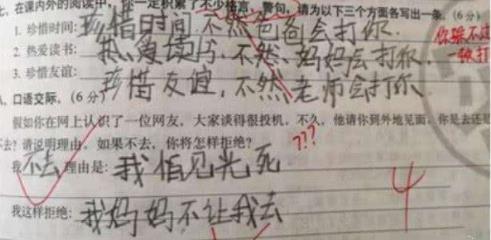 七、在课内外的阅读中，你一定积累了不少格言、警句，请为以下三个方面各写出一条。（6分）
1. 珍惜时间：珍惜时间不然爸爸会打你.
2. 热爱读书：热爱读书，不然，妈妈会打你，
3. 珍惜友谊：珍惜友谊，不然老师会打你
你躲不过
一顿打
八、口语交际。（6分）
假如你在网上认识了一位网友，大家谈得很投机，不久，他请你到外地见面，你是去还是
不去？请说明理由，如果不去，你将怎样拒绝？
???
我不去理由是：我怕见光死
4
我这样拒绝：我妈妈不让我去